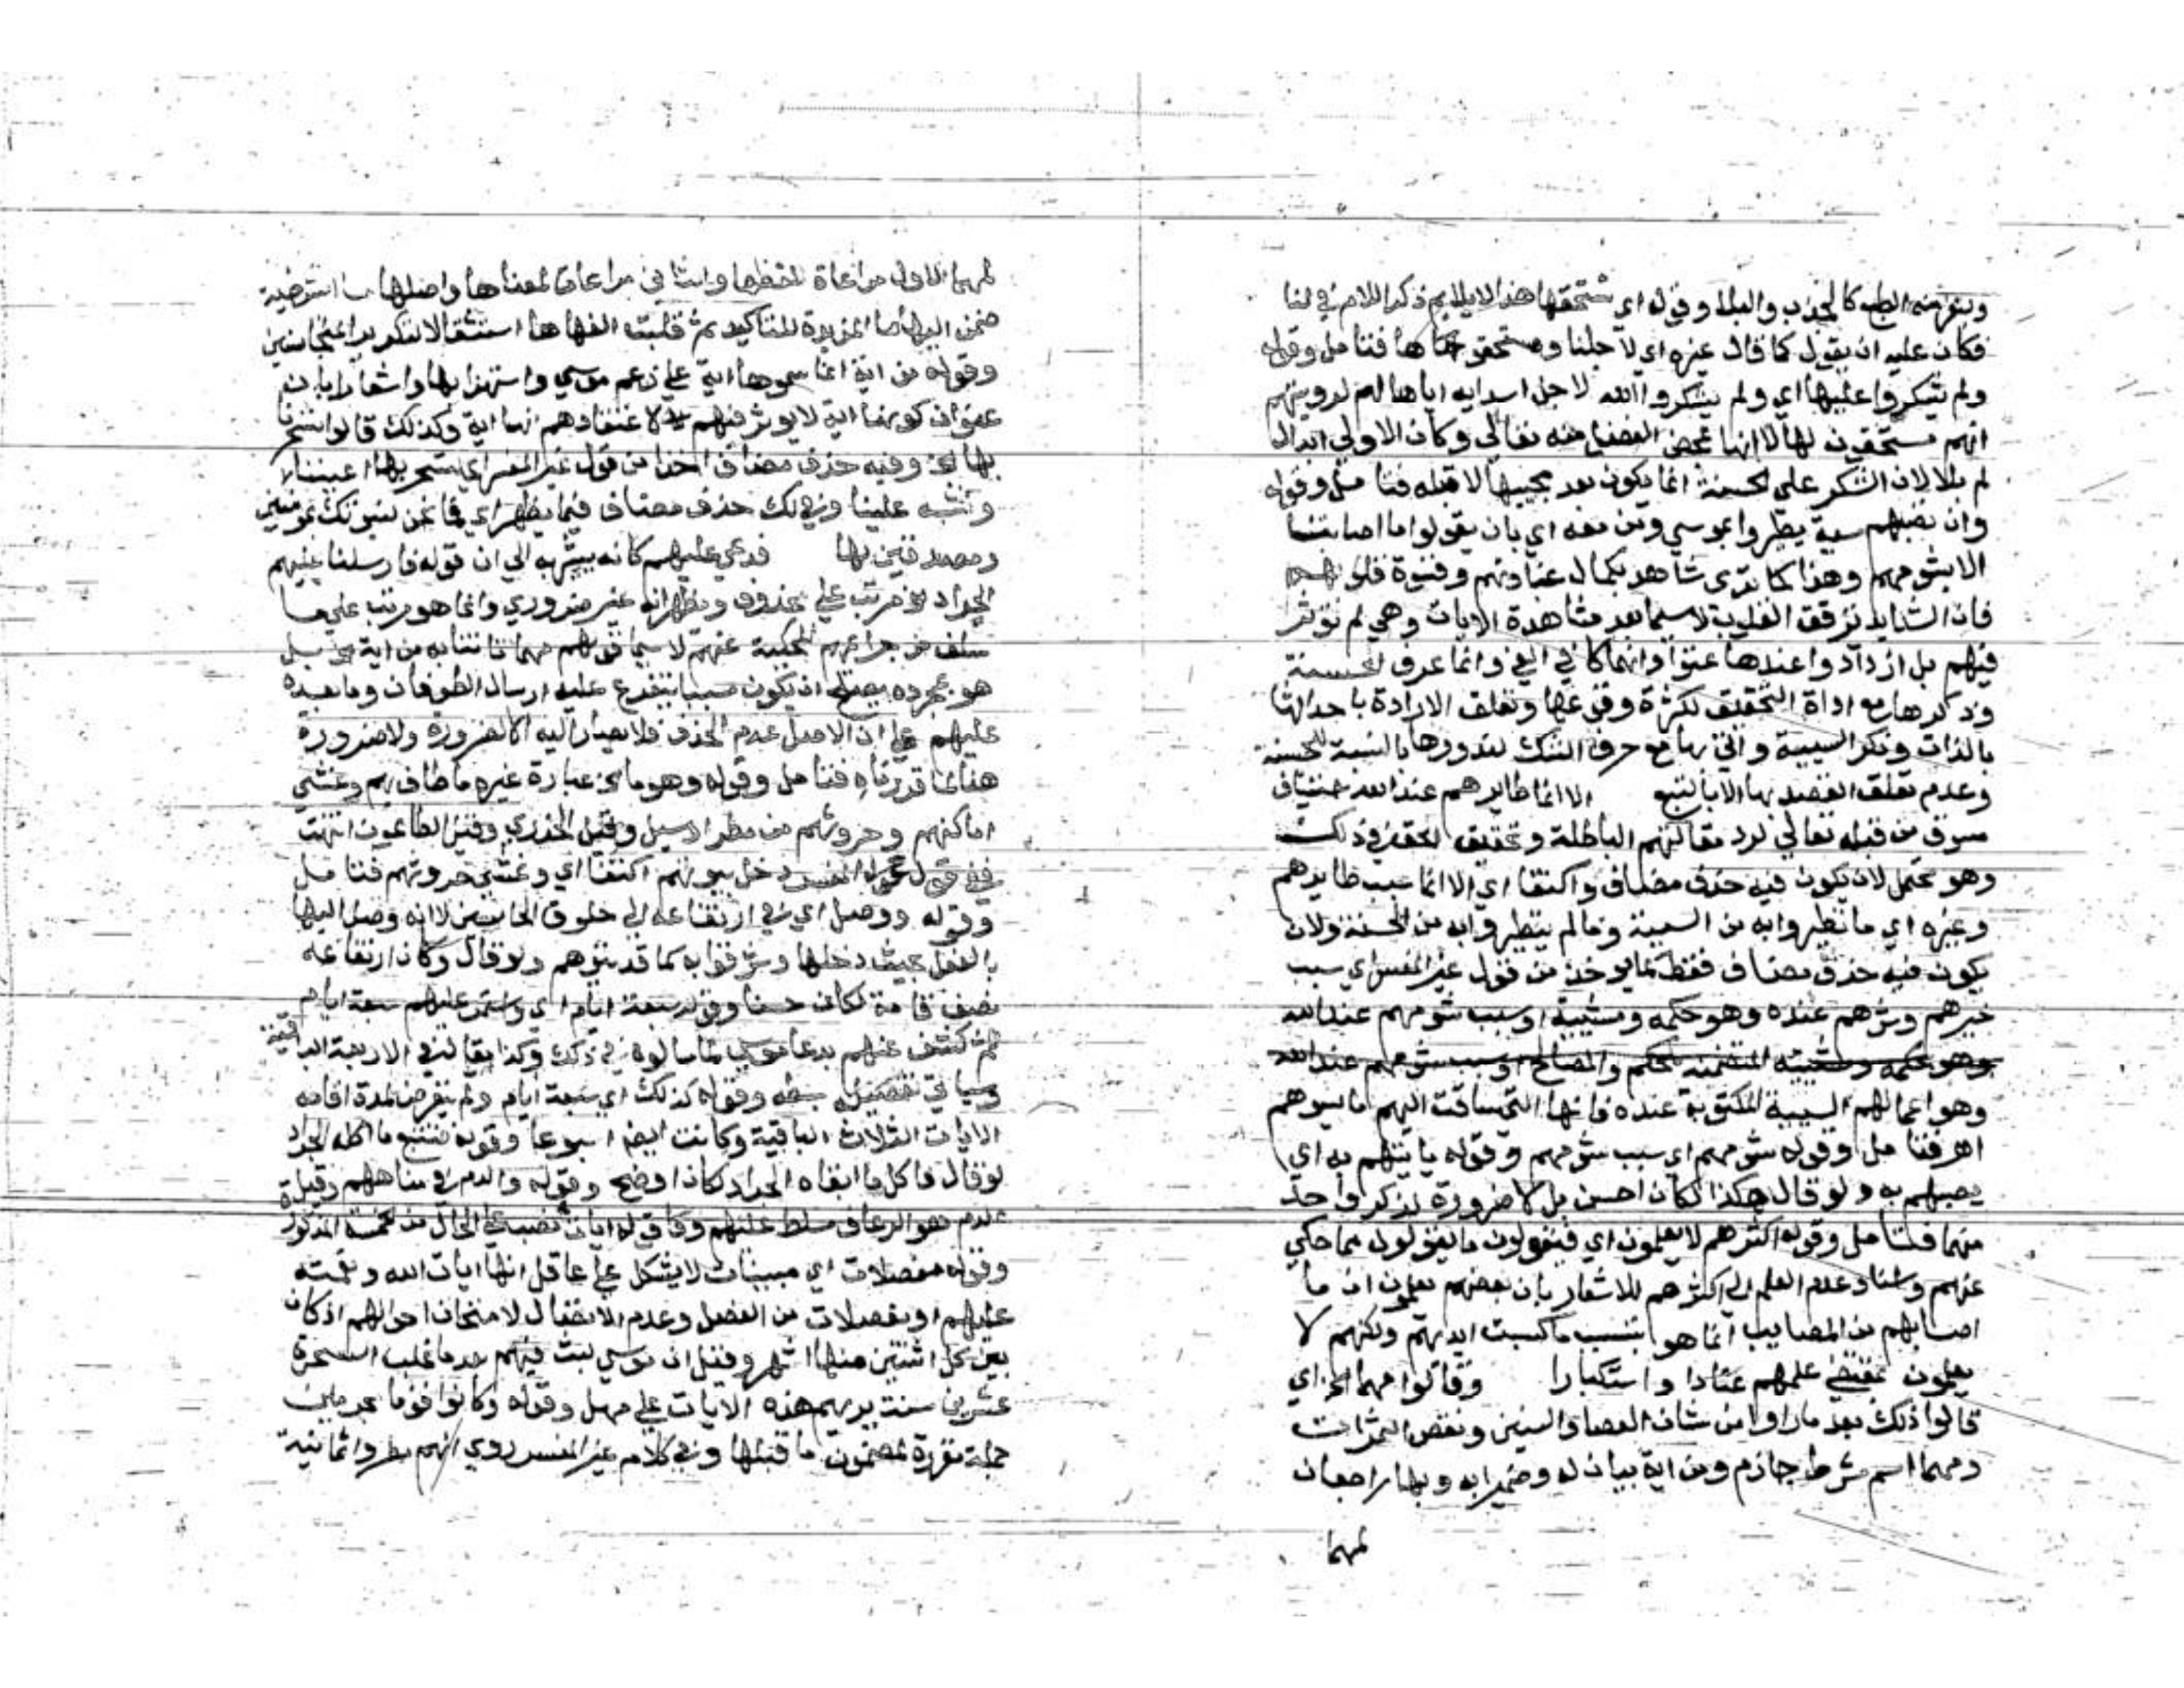 وينفر منه الطبع كالجدب والبلا وقوله اي نستحقها هذا لا يلايم ذكر اللام في لنا
فكان عليه ان يقول كما قال غيره اي لاجلنا ومستحقو فتامل وقوله
ولم يشكروا عليها اي ولم يشكروا الله لاجل اسدايه اياها لهم لرويتهم
انهم مستحقون لها لا انها محض الفضل منه تعالى وكان الاولى ابدال
لم بلا لان الشكر على الحسنة انما يكون بعد مجيها لا قبله فتامل وقوله
وان تصبهم سيية يطيروا بموسى ومن معه اي بان يقولوا ما اصابتنا
الا بشومهم وهذا كما ترى شاهد بكمال عنادهم وقسوة قلوبهم
فان الشدايد ترقق القلوب لا سيما بعد مشاهدة الايات وهي لم توثر
فيهم بل ازدادوا عندها عتوا وانهماكا في الغي وانما عرف الحسنة
وذكرها مع اداة التحقيق لكثرة وقوعها وتعلق الارادة باحداثها
بالذات ونكر السيية واتى بها مع حرف الشك لندورها بالنسبة للحسنة
وعدم تعلق القصد بها الا بالتبع الا انما طايرهم عند الله استيناف
مسوق من قبله تعالى لرد مقالتهم الباطلة وتحقيق الحق في ذلك
وهو محتمل لان يكون فيه حذف مضاف واكتفا اي الا انما سبب طايرهم
وغيره اي ما تطيروا به من السيية وما لم يتطيروا به من الحسنة ولان
يكون فيه حذف مضاف فقط كما يوخذ من قول غير المفسر اي سبب
خيرهم وشرهم عنده وهو حكمه ومشيته او سبب شومهم عند الله
وهو حكمه ومشيته المتضمنة للحكم والمصالح او سبب شومهم عند الله
وهو اعمالهم السيية المكتوبة عنده فانها التي ساقت اليهم ما يسوهم
اهـ فتامل وقوله شومهم اي سبب شومهم وقوله ياتيهم به اي
يصيبهم به ولو قال هكذا لكان احسن بل لا ضرورة لذكر واحد
منهما فتامل وقوله اكثرهم لا يعلمون اي فيقولون ما يقولون مما حكي
عنهم واسناد عدم العلم الى اكثرهم للاشعار بان بعضهم يعلمون ان ما
اصابهم من المصايب انما هو بسبب ما كسبت ايديهم ولكنهم لا
يعملون بمقتضى علمهم عنادا واستكبارا وقالوا مهما الخ اي
قالوا ذلك بعد ما راوا من شان العصا والسنين ونقص الثمرات
ومهما اسم شرط جازم ومن اية بيان له وضميرا به وبها راجعان
لمهما
لمهما الاول مراعاة للفظها والثاني مراعاة لمعناها واصلها ما الشرطية
ضمت اليها ما المزيدة للتاكيد ثم قلبت الفها ها استثقالا لتكرير المتجانسين
وقوله من اية انما سموها اية على زعم موسى واستهزا بها واشعارا بان
عنوان كونها اية لا يوثر فيهم لا اعتقادهم انها اية وكذلك قالوا لتسحرنا
بها الخ وفيه حذف مضاف اخذا من قول غير المفسر اي لتسحر بها اعيننا
وتشبه علينا وفي لك حذف مضاف فيما يظهر اي فما نحن لنبوتك بمومنين
ومصدقين بها فدعى عليهم كانه يشير به الى ان قوله فارسلنا عليهم
الجراد الخ مرتب على محذوف ويظهر انه غير ضروري وانما هو مرتب على ما
سلف من جرايمهم المحكية عنهم لا سيما قولهم مهما تاتنا به من اية الخ بل
هو بمجرده يصلح ان يكون سببا يتفرع عليه ارسال الطوفان وما بعده
عليهم على ان الاصل عدم الحذف فلا يصار اليه الا لضرورة ولا ضرورة
هنا لما قررناه فتامل وقوله وهو ما الخ عبارة غيره ما طاف بهم وغشي
اماكنهم وحروثهم من مطر او سيل وقيل الجدري وقيل الطاعون انتهت
ففي قول المفسر دخل بيوتهم اكتفا اي وغشي حروثهم فتامل
وقوله ووصل اي في ارتفاعه الى حلوق الجالسين لا انه وصل اليها
بالفعل بحيث دخلها وشرقوا به كما قد يتوهم ولو قال وكان ارتفاعه
نصف قامة لكان حسنا وقوله سبعة ايام اي واستمر عليهم سبعة ايام
ثم كشف عنهم بدعا موسى لما سالوه في ذلك وكذا يقال في الاربعة الباقية
وسياتي تفصيل بعضه وقوله كذلك اي سبعة ايام ولم يتعرض لمدة اقامة
الايات الثلاث الباقية وكانت ايضا اسبوعا وقوله فتتبع ما اكله الجراد
لو قال فاكل ما ابقاه الجراد لكان اوضح وقوله والدم في مياههم وقيل
الدم هو الرعاف سلط عليهم وقوله ايات نصب على الحال من الخمسة المذكورة
وقوله مفصلات اي مبينات لا يشكل على عاقل انها ايات الله ونقمته
عليهم او مفصلات من الفصل وعدم الاتصال لامتحان احوالهم اذ كان
بين كل اثنتين منها شهر وقيل ان موسى لبث فيهم بعد ما غلب السحرة
عشرين سنة يريهم هذه الايات على مهل وقوله وكانوا قوما مجرمين
جملة مقررة لمضمون ما قبلها وفي كلام غير المفسر روي انهم مطروا ثمانية